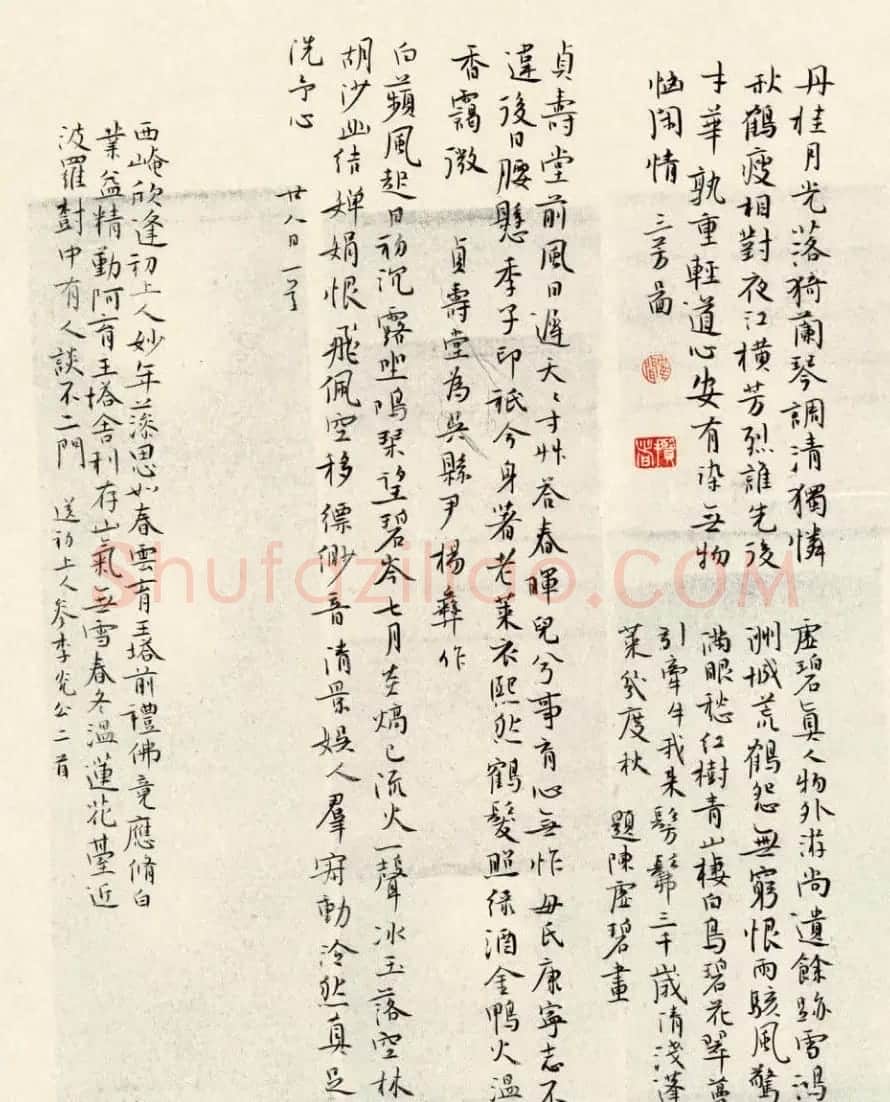 丹桂月光落猗蘭琴調清獨憐
秋鶴瘦相對夜江橫芳烈誰先後
才華孰重輕道心安有染無物
惱閑情 三芳圖
虛碧真人物外游尚遺餘跡雪鴻
洲城荒鶴怨無窮恨雨駭風驚
滿眼愁紅樹青山棲白鳥碧花翠蔓
引牽牛我來髣髴三千歲清淺蓬
萊幾度秋 題陳虛碧畫
貞壽堂前風日遲天〻寸艸荅春暉兒兮事育心無怍母氏康寧志不
違後日腰懸季子印祇今身著老萊衣熙然鶴髮照綠酒金鴨火溫
香靄微 貞壽堂為吳縣尹楊彝作
白蘋風起日初沉露坐鳴琴望碧岑七月炎熇已流火一聲冰玉落空林
胡沙幽結嬋娟恨飛佩空移縹緲音清景娛人羣竅動泠然真足
洗予心 廿八日
西崦欣逢初上人妙年藻思如春雲育王塔前禮佛竟應脩白
業益精勤阿育王塔舍利存山氣無雪春冬溫蓮花臺近
波羅樹中有人談不二門 送初上人參李光公二首
Shufaziliao.COM